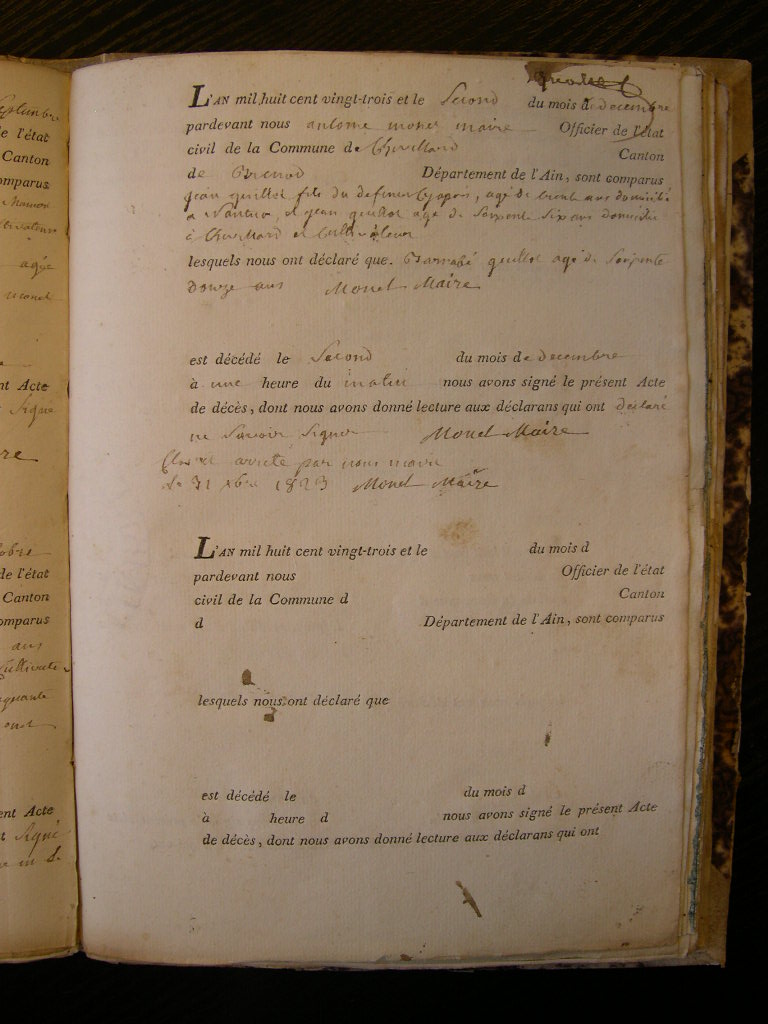 L'AN mil huit cent vingt-trois et le Second du mois de decembre
pardevant nous antoine monet maire Officier de l'état
civil de la Commune de Chevillard Canton
de Brenod Département de l'Ain, sont comparus
jean guillot fils du defunt agé de trente ans domicilié
a Nantua, et jean guillot agé de Soixante Six ans domicilié
à Chevillard et Cultivateur
lesquels nous ont déclaré que Barnabé guillot agé de Soixante
douze ans Monet Maire
est décédé le Second du mois de decembre
à une heure du matin nous avons signé le présent Acte
de décès, dont nous avons donné lecture aux déclarans qui ont declaré
ne Savoir Signer Monet Maire
Clos et arreté par nous maire
le 31 xbre 1823 Monet Maire
L'AN mil huit cent vingt-trois et le du mois d
pardevant nous Officier de l'état
civil de la Commune d Canton
d Département de l'Ain, sont comparus
lesquels nous ont déclaré que
est décédé le du mois d
à heure d nous avons signé le présent Acte
de décès, dont nous avons donné lecture aux déclarans qui ont
de l'état
Canton
comparus
agée
monet
nt Acte
Signé
re
obre
de l'état
Canton
omparus
ans
Cultivate
quante
onet
ent Acte
Signé